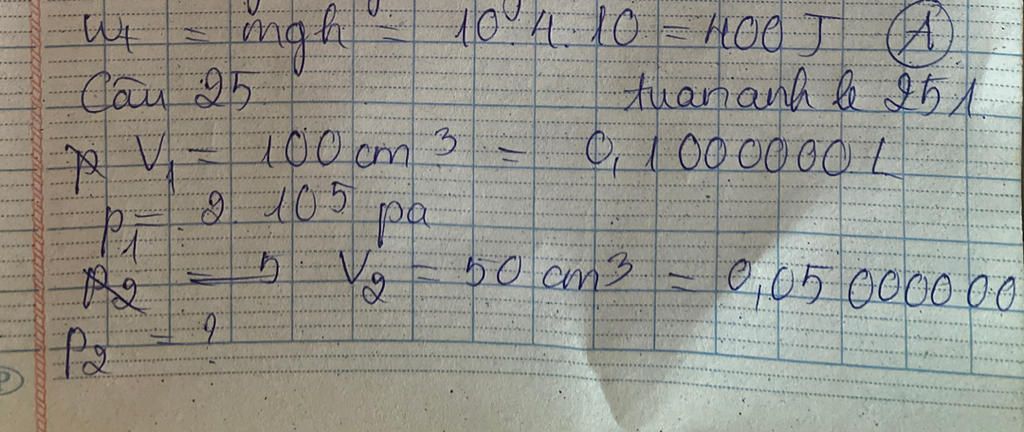 Wt = mgh = 10.4.10 = 400 J (A)
Câu 25 tuananh le 251.
V1 = 100 cm3 = 0,1000000 L
p1 = 2.105 pa
p2 = 5 V2 = 50 cm3 = 0,05 000000
p2 = ?